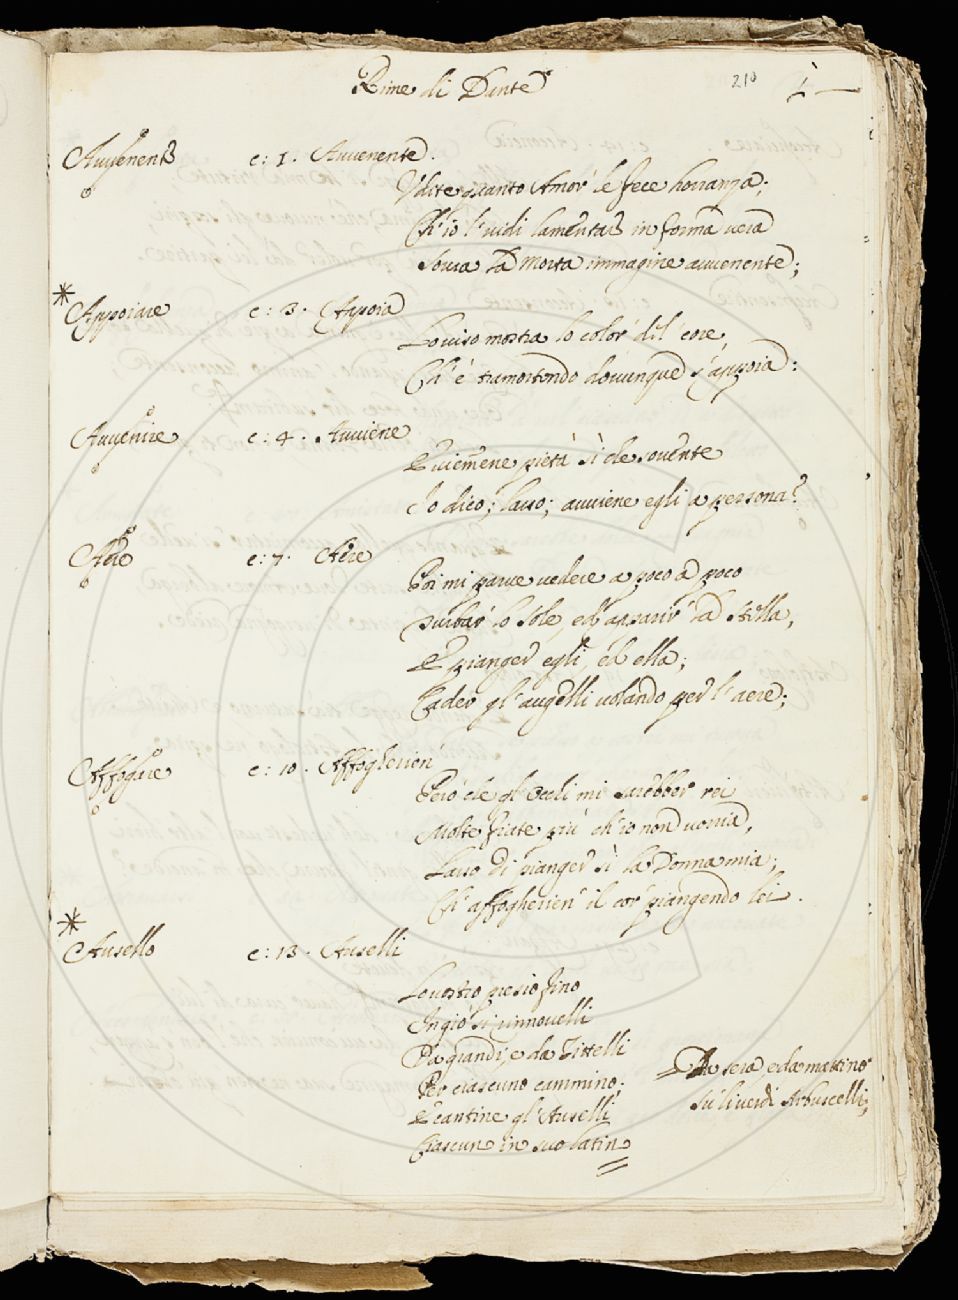 Rime di Dante
210
Auuenente c: 1. Auuenente.
Udite quanto Amor le fece horranza;
Ch'io 'l uidi lamentare in forma uera
Soura la morta immagine auuenente;
* Appoiare c: 3. Appoia
Lo uiso mostra lo color del core,
Ch'è tramortendo douunque s'appoia:
Auuenire c: 4. Auuiene
E uiemmene pietà sì che souente
Io dico; lasso; auuiene egli a persona?
Aere c: 7. Aere
Poi mi parue uedere a poco a poco
Turbar lo Sole, ed apparir la stella,
E pianger egli, ed ella;
Cader gl'augelli uolando per l'aere;
Affogare c: 10. Affogherien
Però che gl'Occhi mi sarebber rei
Molte fiate più ch'io non uorria,
Lasso di pianger sì la Donna mia;
Ch'affogherien il cor piangendo lei.
* Ausello c: 13. Auselli
Lo uostro presio fino
In gio' si rinnouelli
Da grandi, e da Zittelli
Per ciascuno cammino;
E cantine gl'Auselli
Ciascuno in suo latino
Da sera, e da mattino
Su' li uerdi Arbuscelli;